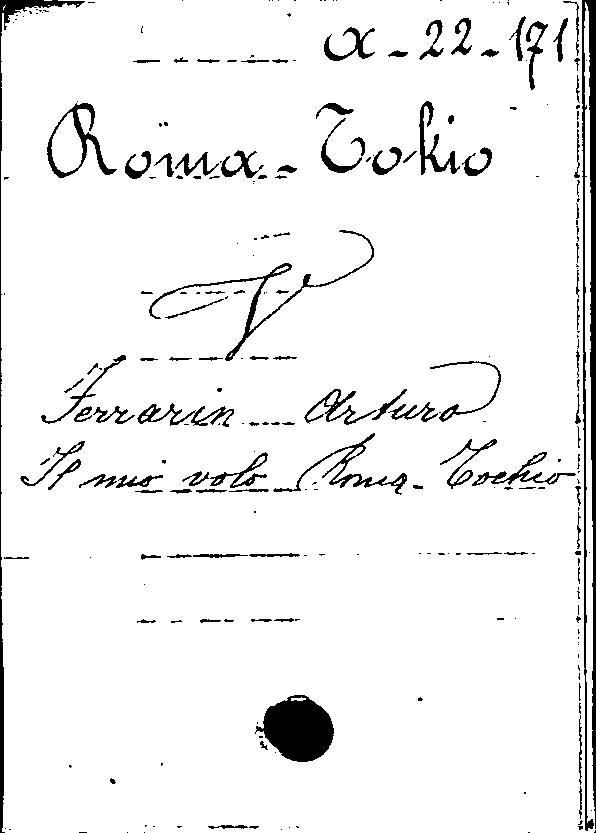 α-22-171
Roma-Tokio
V
Ferrarin Arturo
Il mio volo Roma-Tochio